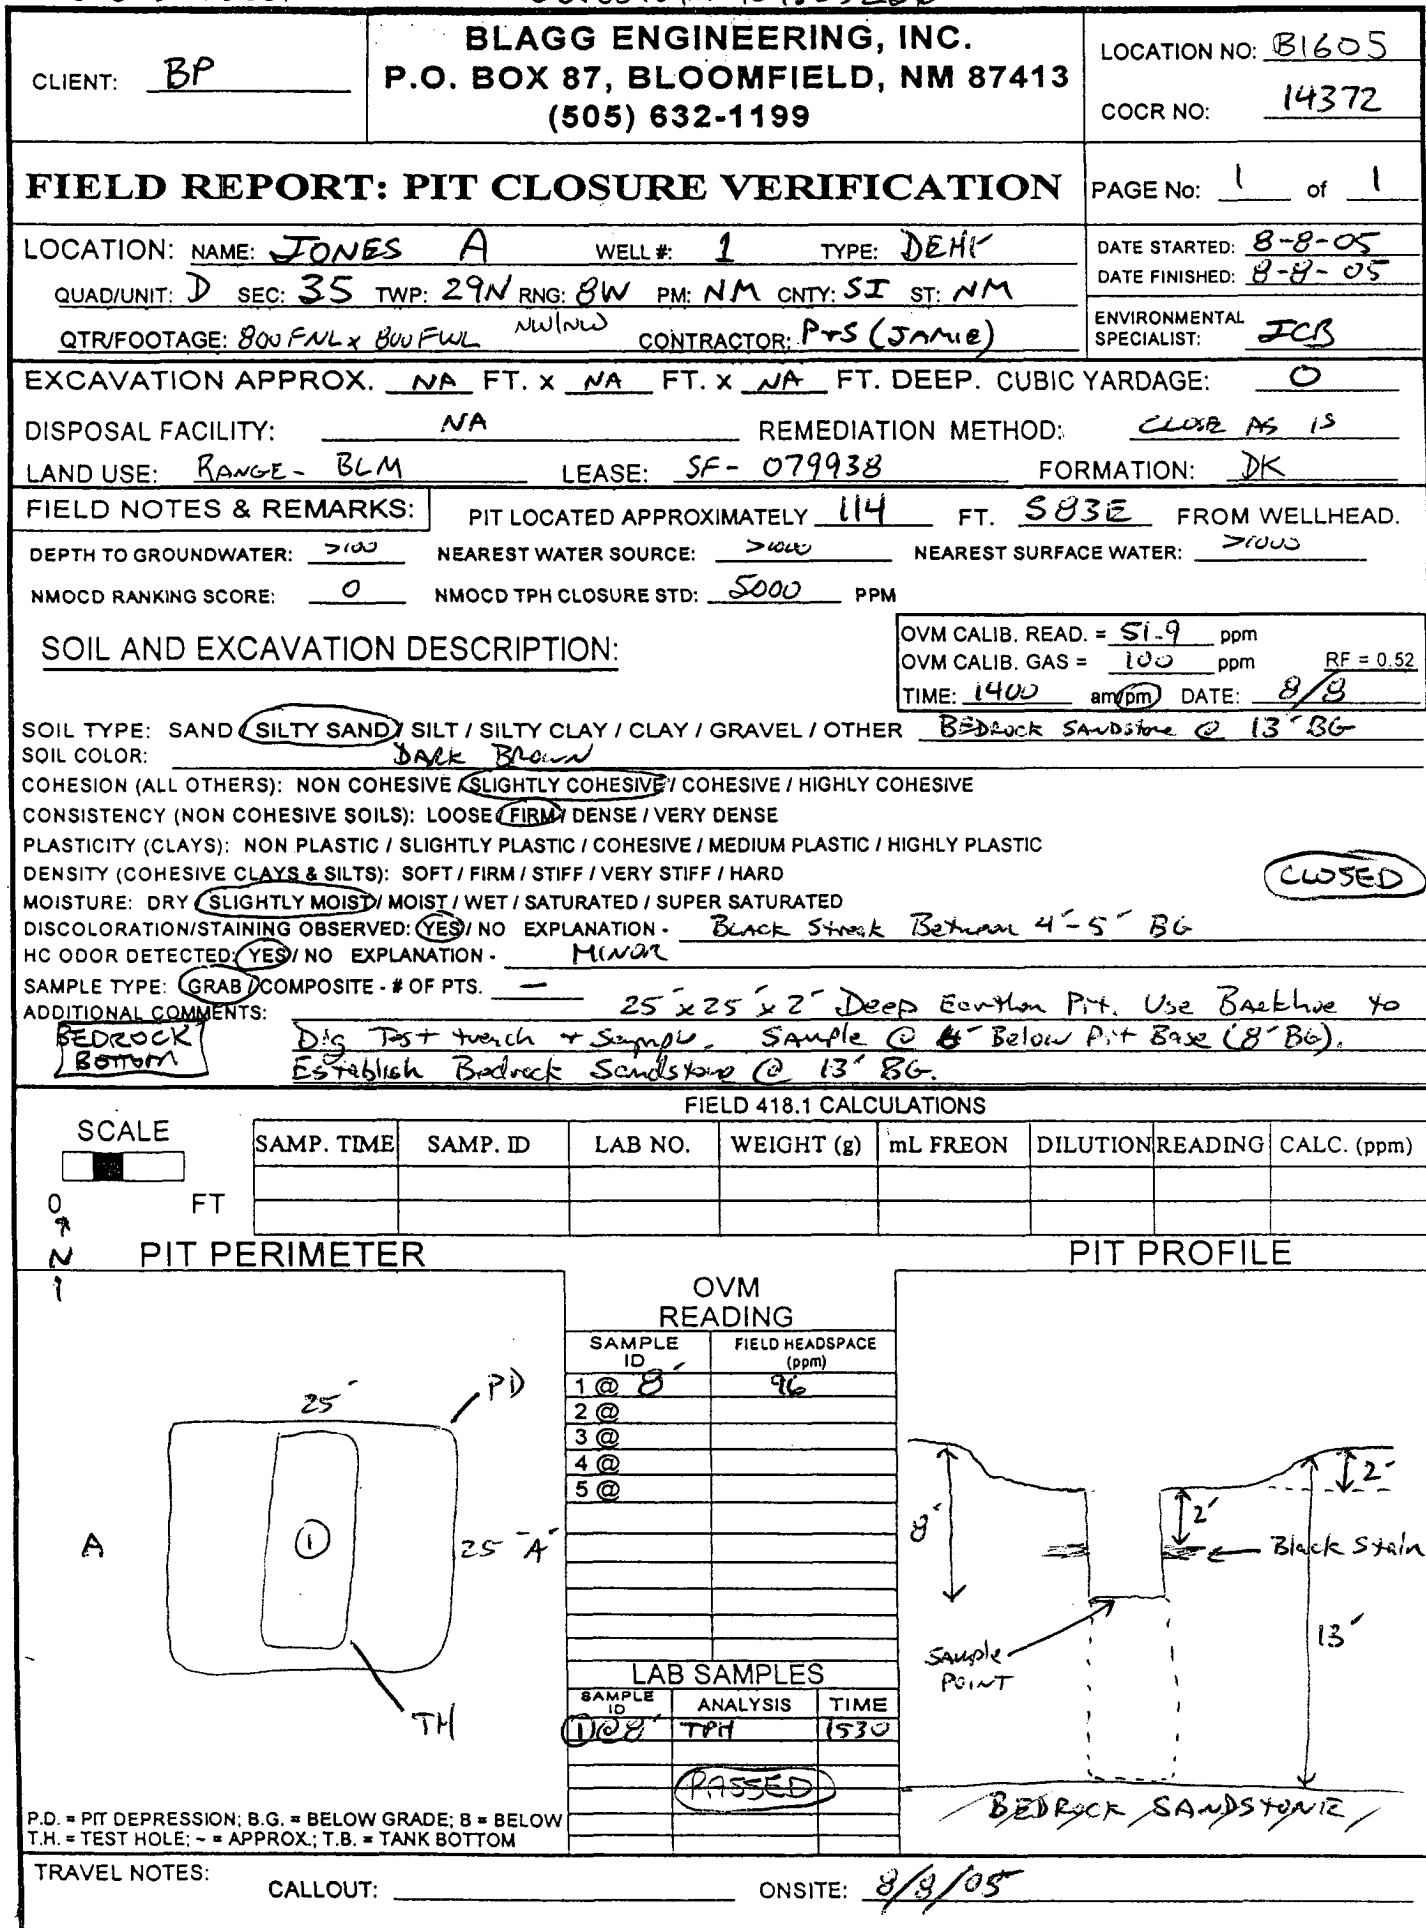 BLAGG ENGINEERING, INC.
CLIENT: BP
P.O. BOX 87, BLOOMFIELD, NM 87413
(505) 632-1199
LOCATION NO: B1605
COCR NO: 14372
FIELD REPORT: PIT CLOSURE VERIFICATION
PAGE No: 1 of 1
LOCATION: NAME: JONES A WELL #: 1 TYPE: DEHY
DATE STARTED: 8-8-05
DATE FINISHED: 8-8-05
QUAD/UNIT: D SEC: 35 TWP: 29N RNG: 8W PM: NM CNTY: SJ ST: NM
QTR/FOOTAGE: 800 FNL x 800 FWL NW/NW CONTRACTOR: P+S (JAMIE)
ENVIRONMENTAL SPECIALIST: JCB
EXCAVATION APPROX. NA FT. x NA FT. x NA FT. DEEP. CUBIC YARDAGE: 0
DISPOSAL FACILITY: NA REMEDIATION METHOD: CLOSE AS IS
LAND USE: RANGE - BLM LEASE: SF- 079938 FORMATION: DK
FIELD NOTES & REMARKS: PIT LOCATED APPROXIMATELY 114 FT. S83E FROM WELLHEAD.
DEPTH TO GROUNDWATER: >100 NEAREST WATER SOURCE: >1000 NEAREST SURFACE WATER: >1000
NMOCD RANKING SCORE: 0 NMOCD TPH CLOSURE STD: 5000 PPM
SOIL AND EXCAVATION DESCRIPTION:
OVM CALIB. READ. = 51.9 ppm
OVM CALIB. GAS = 100 ppm RF = 0.52
TIME: 1400 am/pm DATE: 8/8
SOIL TYPE: SAND / SILTY SAND / SILT / SILTY CLAY / CLAY / GRAVEL / OTHER BEDROCK SANDSTONE @ 13' BG
SOIL COLOR: DARK BROWN
COHESION (ALL OTHERS): NON COHESIVE / SLIGHTLY COHESIVE / COHESIVE / HIGHLY COHESIVE
CONSISTENCY (NON COHESIVE SOILS): LOOSE / FIRM / DENSE / VERY DENSE
PLASTICITY (CLAYS): NON PLASTIC / SLIGHTLY PLASTIC / COHESIVE / MEDIUM PLASTIC / HIGHLY PLASTIC
DENSITY (COHESIVE CLAYS & SILTS): SOFT / FIRM / STIFF / VERY STIFF / HARD
CLOSED
MOISTURE: DRY / SLIGHTLY MOIST / MOIST / WET / SATURATED / SUPER SATURATED
DISCOLORATION/STAINING OBSERVED: YES / NO EXPLANATION - Black Streak Between 4'-5' BG
HC ODOR DETECTED: YES / NO EXPLANATION - MINOR
SAMPLE TYPE: GRAB / COMPOSITE - # OF PTS. —
ADDITIONAL COMMENTS: 25' x 25' x 2' Deep Earthen Pit. Use Backhoe to
BEDROCK BOTTOM
Dig Test trench + Sample. Sample @ 6' Below Pit Base (8' BG).
Establish Bedrock Sandstone @ 13' BG.
FIELD 418.1 CALCULATIONS
SCALE
SAMP. TIME SAMP. ID LAB NO. WEIGHT (g) mL FREON DILUTION READING CALC. (ppm)
0 FT
N
PIT PERIMETER
PIT PROFILE
OVM
READING
SAMPLE ID FIELD HEADSPACE (ppm)
1 @ 8' 96
2 @
3 @
4 @
5 @
25'
PD
A
1
25' A'
TH
LAB SAMPLES
SAMPLE ID ANALYSIS TIME
1 @ 8' TPH 1530
PASSED
2'
2'
8'
Black Stain
13'
SAMPLE POINT
BEDROCK SANDSTONE
P.D. = PIT DEPRESSION; B.G. = BELOW GRADE; B = BELOW
T.H. = TEST HOLE; ~ = APPROX.; T.B. = TANK BOTTOM
TRAVEL NOTES: CALLOUT: ONSITE: 8/8/05